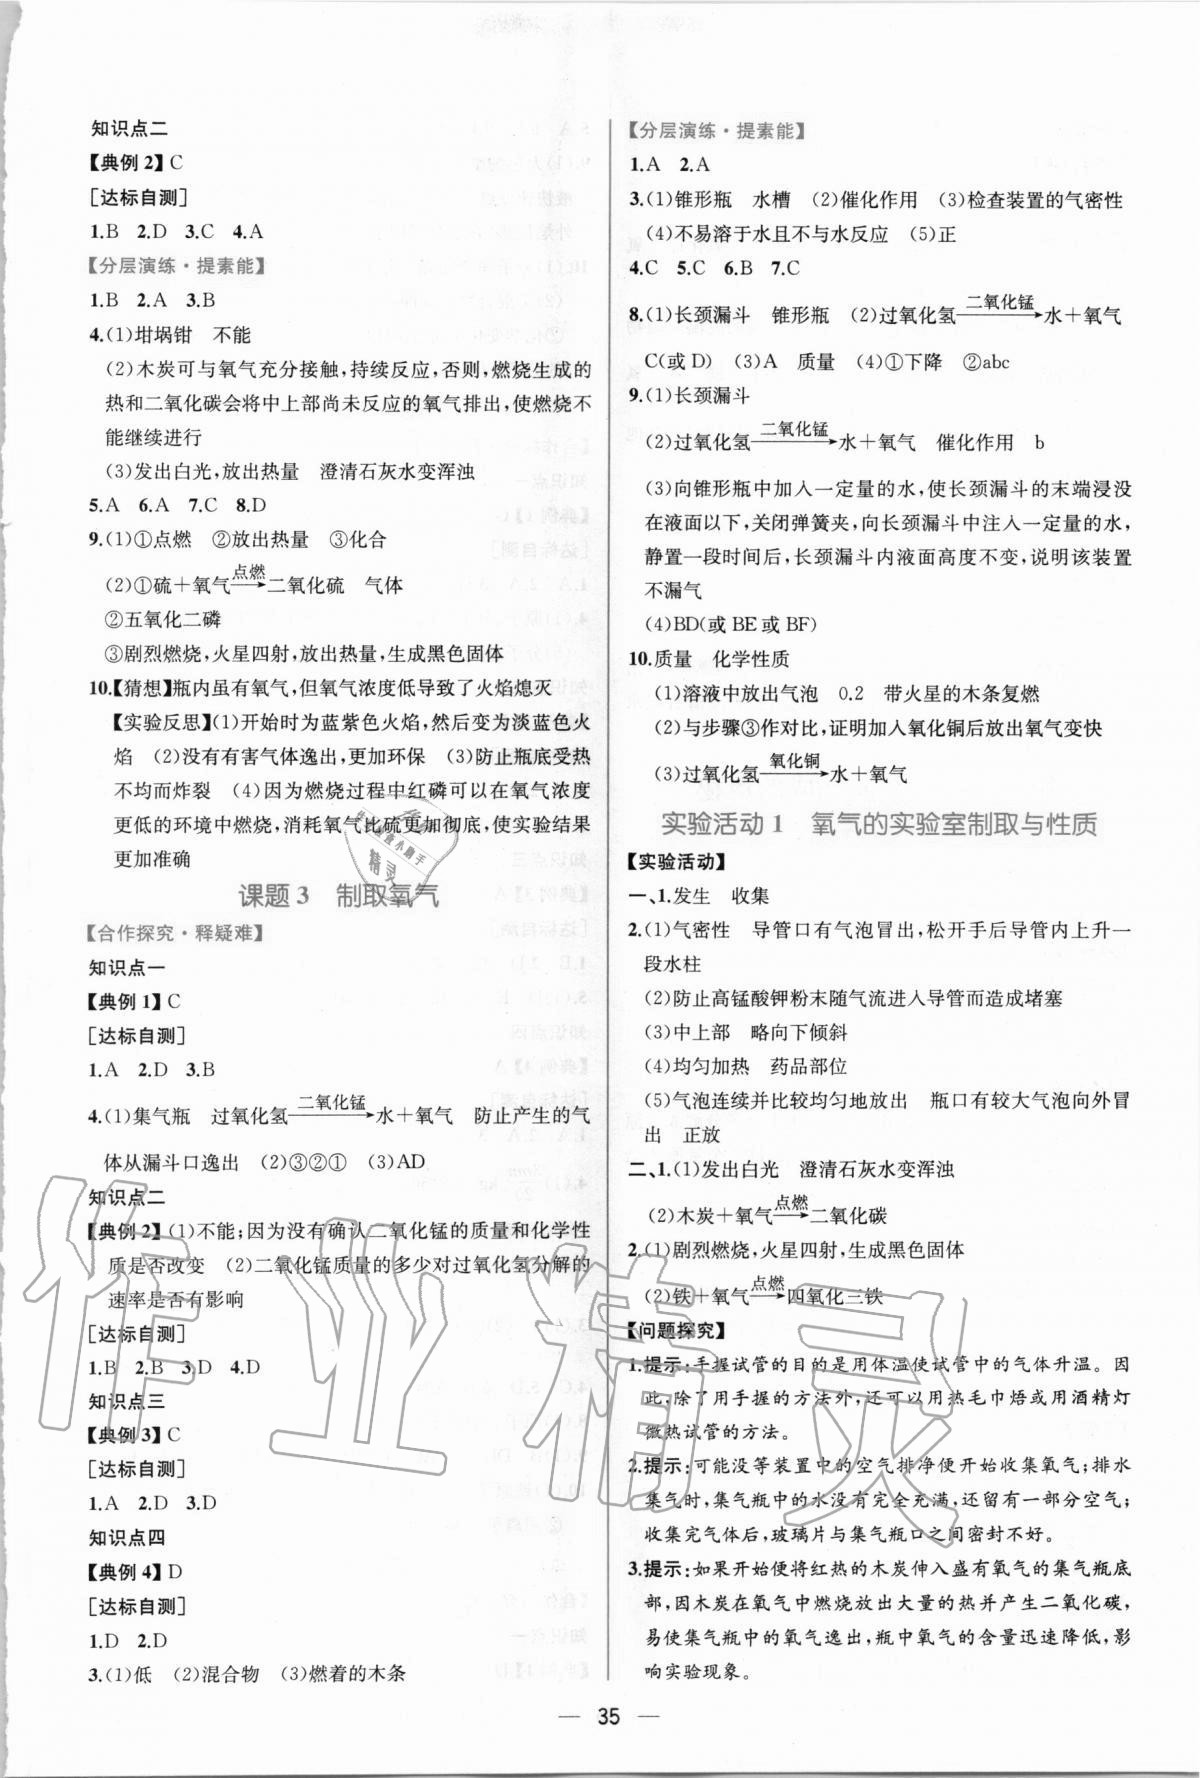 知识点二
【典例2】C
[达标自测]
1.B 2.D 3.C 4.A
【分层演练·提素能】
1.B 2.A 3.B
4.(1)坩埚钳 不能
(2)木炭可与氧气充分接触,持续反应,否则,燃烧生成的
热和二氧化碳会将中上部尚未反应的氧气排出,使燃烧不
能继续进行
(3)发出白光,放出热量 澄清石灰水变浑浊
5.A 6.A 7.C 8.D
9.(1)①点燃 ②放出热量 ③化合
(2)①硫+氧气—点燃→二氧化硫 气体
②五氧化二磷
③剧烈燃烧,火星四射,放出热量,生成黑色固体
10.【猜想】瓶内虽有氧气,但氧气浓度低导致了火焰熄灭
【实验反思】(1)开始时为蓝紫色火焰,然后变为淡蓝色火
焰 (2)没有有害气体逸出,更加环保 (3)防止瓶底受热
不均而炸裂 (4)因为燃烧过程中红磷可以在氧气浓度
更低的环境中燃烧,消耗氧气比硫更加彻底,使实验结果
更加准确
课题3 制取氧气
【合作探究·释疑难】
知识点一
【典例1】C
[达标自测]
1.A 2.D 3.B
4.(1)集气瓶 过氧化氢—二氧化锰→水+氧气 防止产生的气
体从漏斗口逸出 (2)③②① (3)AD
知识点二
【典例2】(1)不能;因为没有确认二氧化锰的质量和化学性
质是否改变 (2)二氧化锰质量的多少对过氧化氢分解的
速率是否有影响
[达标自测]
1.B 2.B 3.D 4.D
知识点三
【典例3】C
[达标自测]
1.A 2.D 3.D
知识点四
【典例4】D
[达标自测]
1.D 2.D
3.(1)低 (2)混合物 (3)燃着的木条
【分层演练·提素能】
1.A 2.A
3.(1)锥形瓶 水槽 (2)催化作用 (3)检查装置的气密性
(4)不易溶于水且不与水反应 (5)正
4.C 5.C 6.B 7.C
8.(1)长颈漏斗 锥形瓶 (2)过氧化氢—二氧化锰→水+氧气
C(或D) (3)A 质量 (4)①下降 ②abc
9.(1)长颈漏斗
(2)过氧化氢—二氧化锰→水+氧气 催化作用 b
(3)向锥形瓶中加入一定量的水,使长颈漏斗的末端浸没
在液面以下,关闭弹簧夹,向长颈漏斗中注入一定量的水,
静置一段时间后,长颈漏斗内液面高度不变,说明该装置
不漏气
(4)BD(或BE或BF)
10.质量 化学性质
(1)溶液中放出气泡 0.2 带火星的木条复燃
(2)与步骤③作对比,证明加入氧化铜后放出氧气变快
(3)过氧化氢—氧化铜→水+氧气
实验活动1 氧气的实验室制取与性质
【实验活动】
一、1.发生 收集
2.(1)气密性 导管口有气泡冒出,松开手后导管内上升一
段水柱
(2)防止高锰酸钾粉末随气流进入导管而造成堵塞
(3)中上部 略向下倾斜
(4)均匀加热 药品部位
(5)气泡连续并比较均匀地放出 瓶口有较大气泡向外冒
出 正放
二、1.(1)发出白光 澄清石灰水变浑浊
(2)木炭+氧气—点燃→二氧化碳
2.(1)剧烈燃烧,火星四射,生成黑色固体
(2)铁+氧气—点燃→四氧化三铁
【问题探究】
1.提示:手握试管的目的是用体温使试管中的气体升温。因
此,除了用手握的方法外,还可以用热毛巾焐或用酒精灯
微热试管的方法。
2.提示:可能没等装置中的空气排净便开始收集氧气;排水
集气时,集气瓶中的水没有完全充满,还留有一部分空气;
收集完气体后,玻璃片与集气瓶口之间密封不好。
3.提示:如果开始便将红热的木炭伸入盛有氧气的集气瓶底
部,因木炭在氧气中燃烧放出大量的热并产生二氧化碳,
易使集气瓶中的氧气逸出,瓶中氧气的含量迅速降低,影
响实验现象。
— 35 —
作业精灵